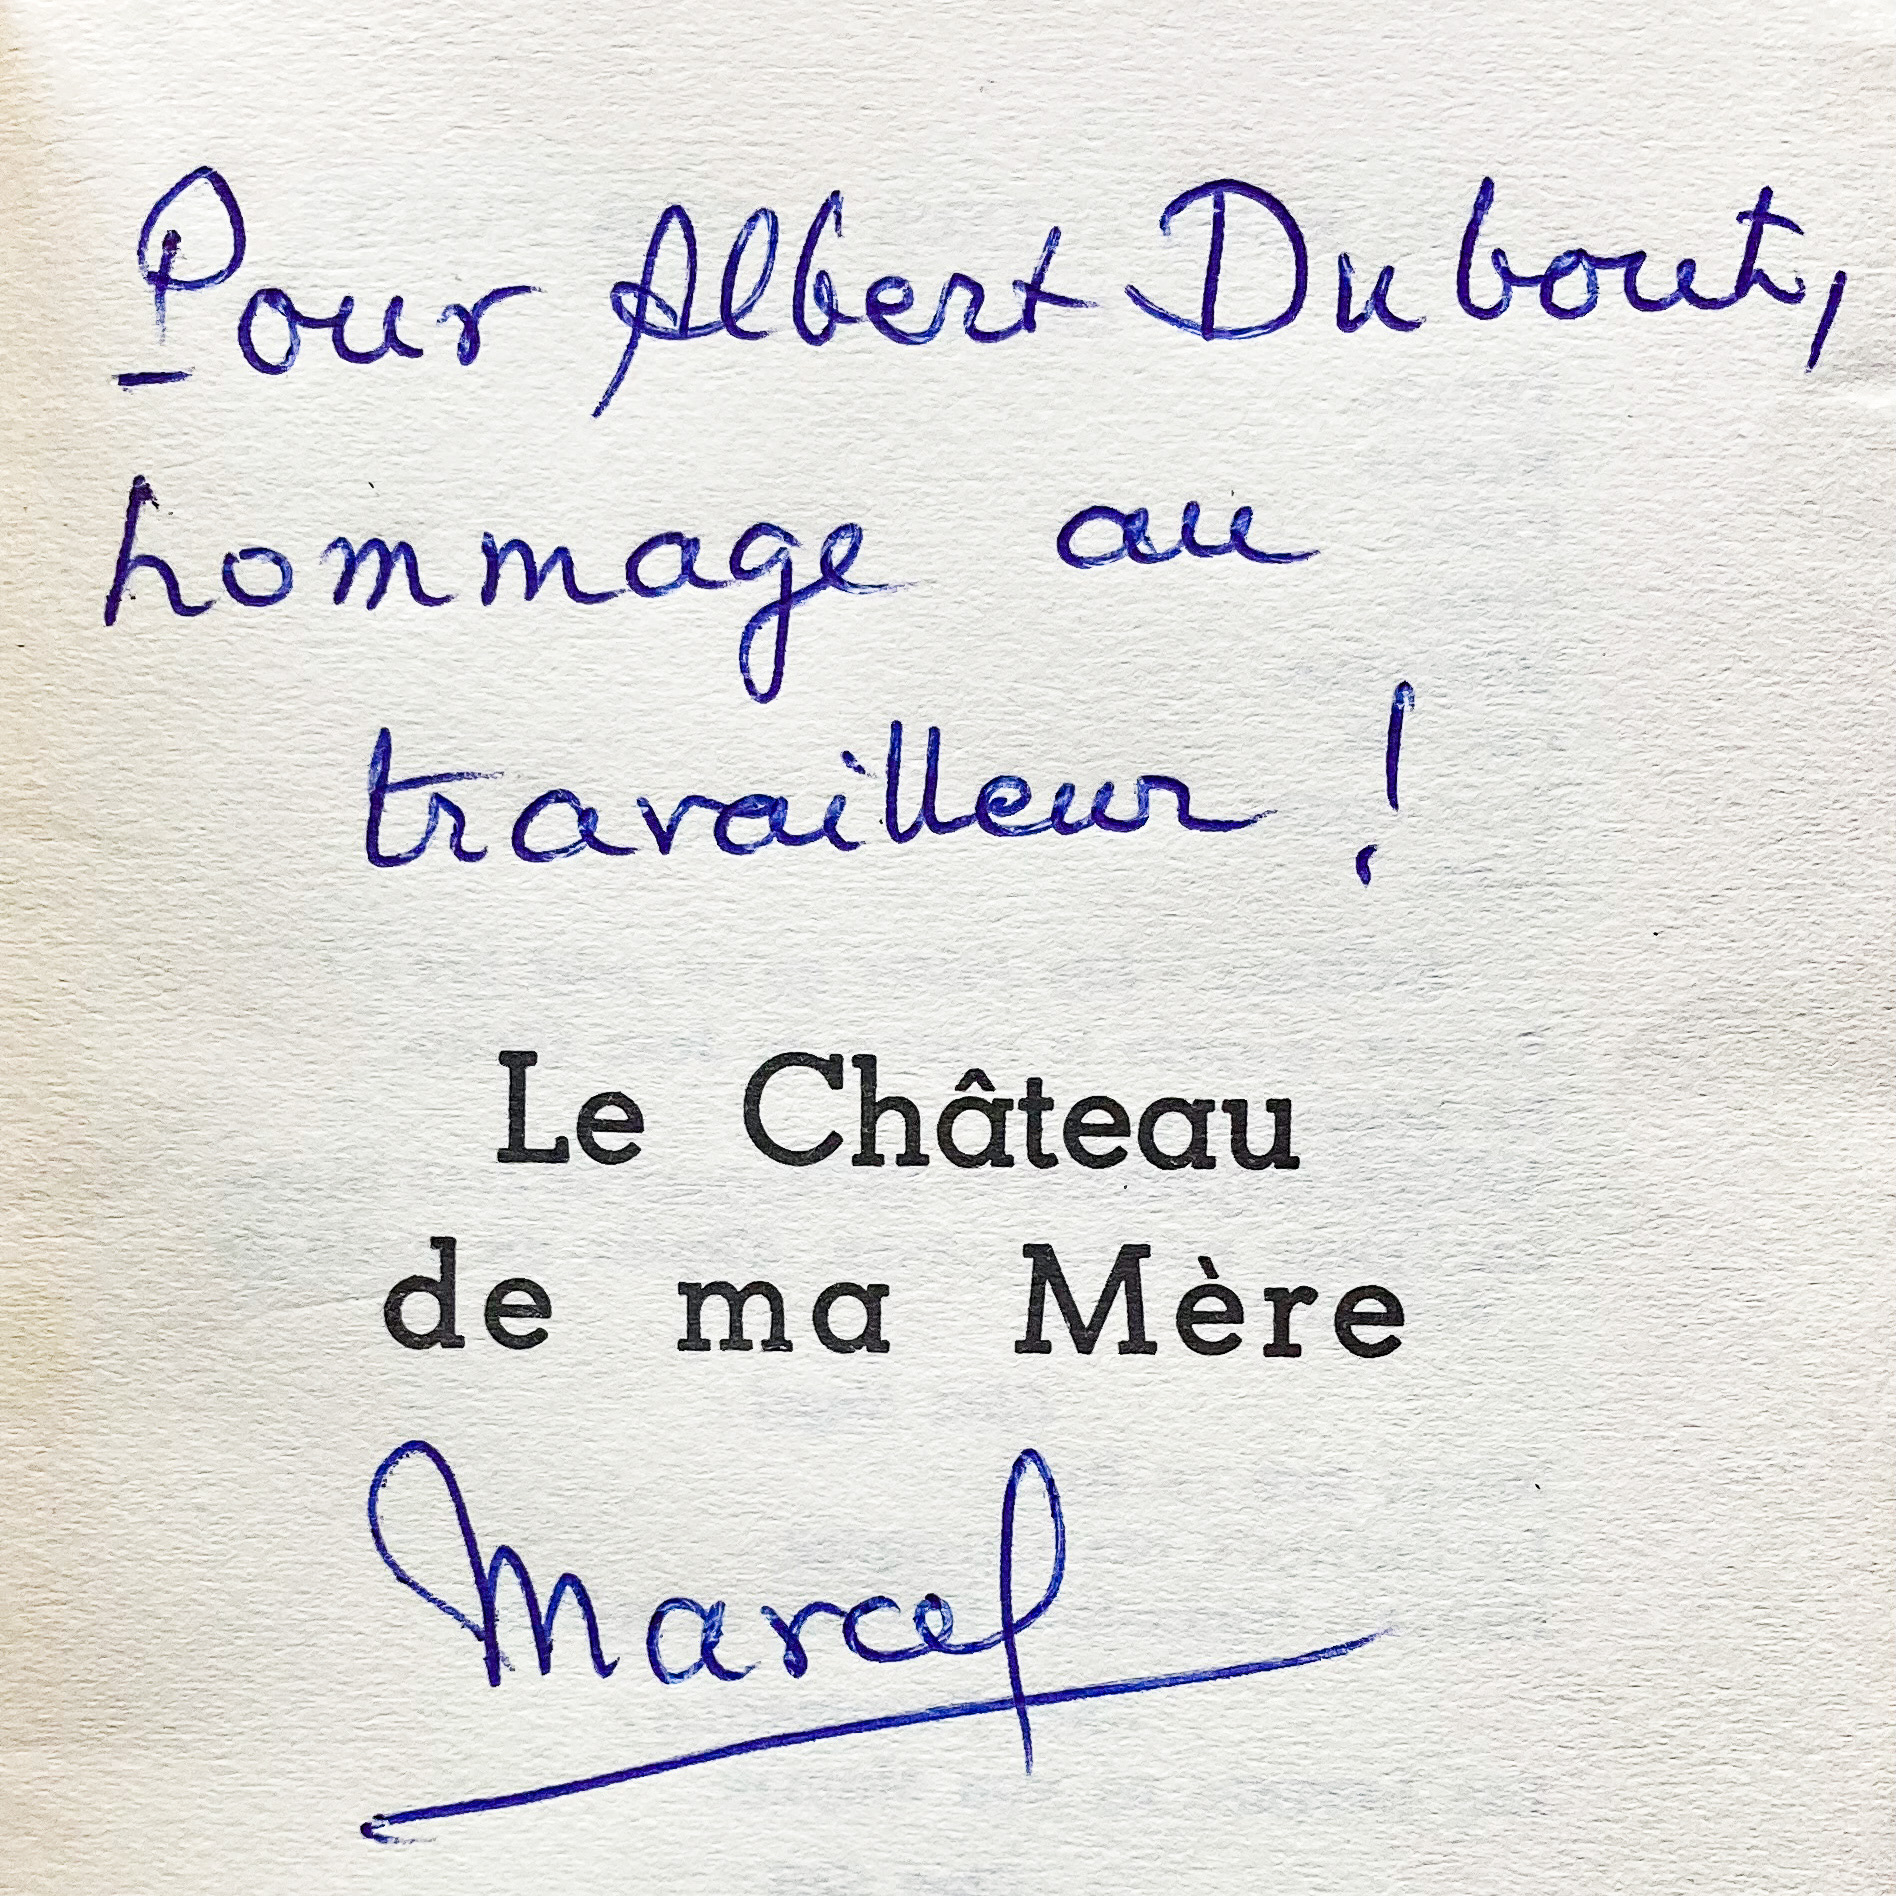 Pour Albert Dubout,
hommage au
travailleur !
Le Château
de ma Mère
Marcel